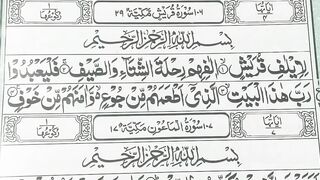 اياتها ٤ ١٠٦ سورة قريش مكية ٢٩ ركوعها ١
بِسْمِ اللهِ الرَّحْمٰنِ الرَّحِيْمِ
لِاِيْلٰفِ قُرَيْشٍ ۙ اٖلٰفِهِمْ رِحْلَةَ الشِّتَآءِ وَالصَّيْفِ ۚ فَلْيَعْبُدُوْا
رَبَّ هٰذَا الْبَيْتِ ۙ الَّذِيْٓ اَطْعَمَهُمْ مِّنْ جُوْعٍ ۙ وَّاٰمَنَهُمْ مِّنْ خَوْفٍ
اياتها ٧ ١٠٧ سورة الماعون مكية ١٧ ركوعها ١
بِسْمِ اللهِ الرَّحْمٰنِ الرَّحِيْمِ